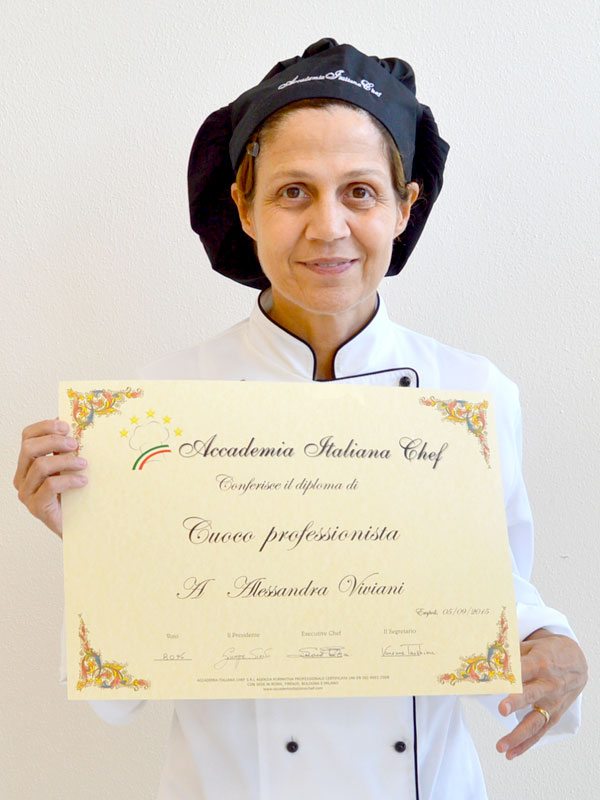 Accademia Italiana Chef
Accademia Italiana Chef
Conferisce il diploma di
Cuoco professionista
A Alessandra Viviani
Empoli, 05/09/2015
Voto Il Presidente Executive Chef Il Segretario
80%
ACCADEMIA ITALIANA CHEF S.R.L AGENZIA FORMATIVA PROFESSIONALE CERTIFICATA UNI EN ISO 9001:2008
CON SEDE IN ROMA, FIRENZE, BOLOGNA E MILANO
www.accademiaitalianachef.com